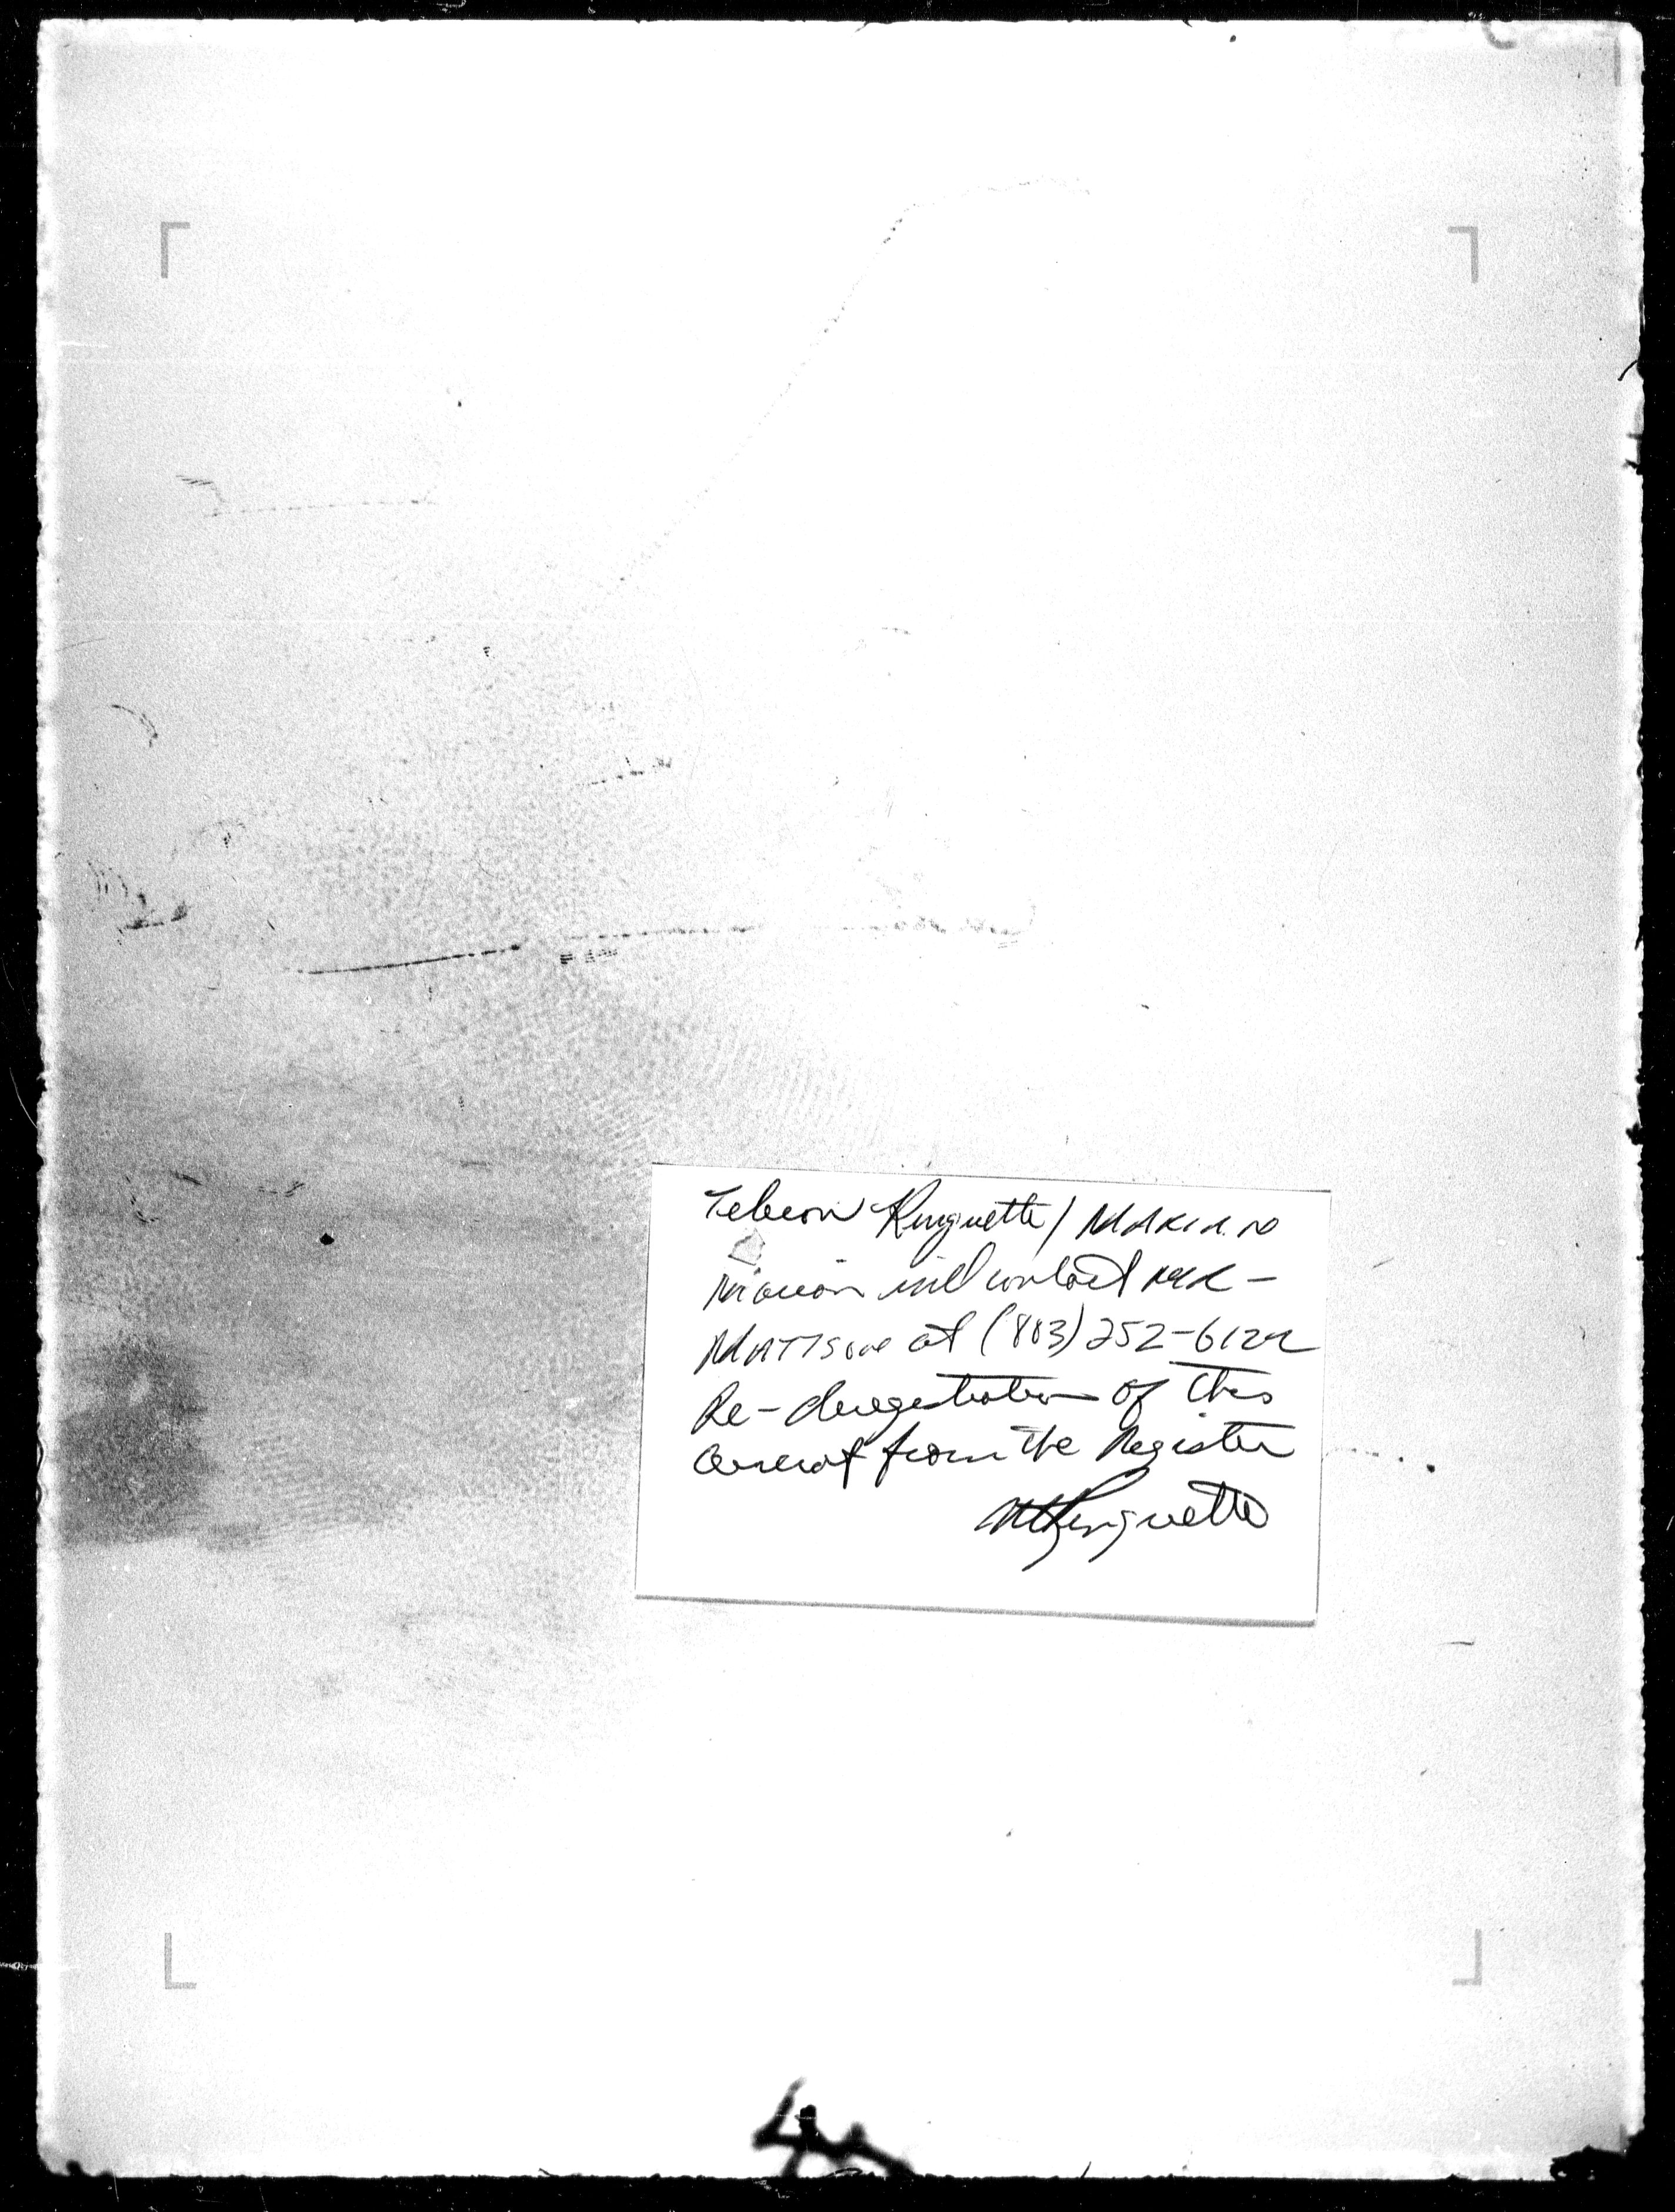 Telecon Ringuette / MARIAN
Marion will contact MR -
MATTSON at (883) 252-6122
Re - deregistration of this
aircraft from the Register
Ringuette